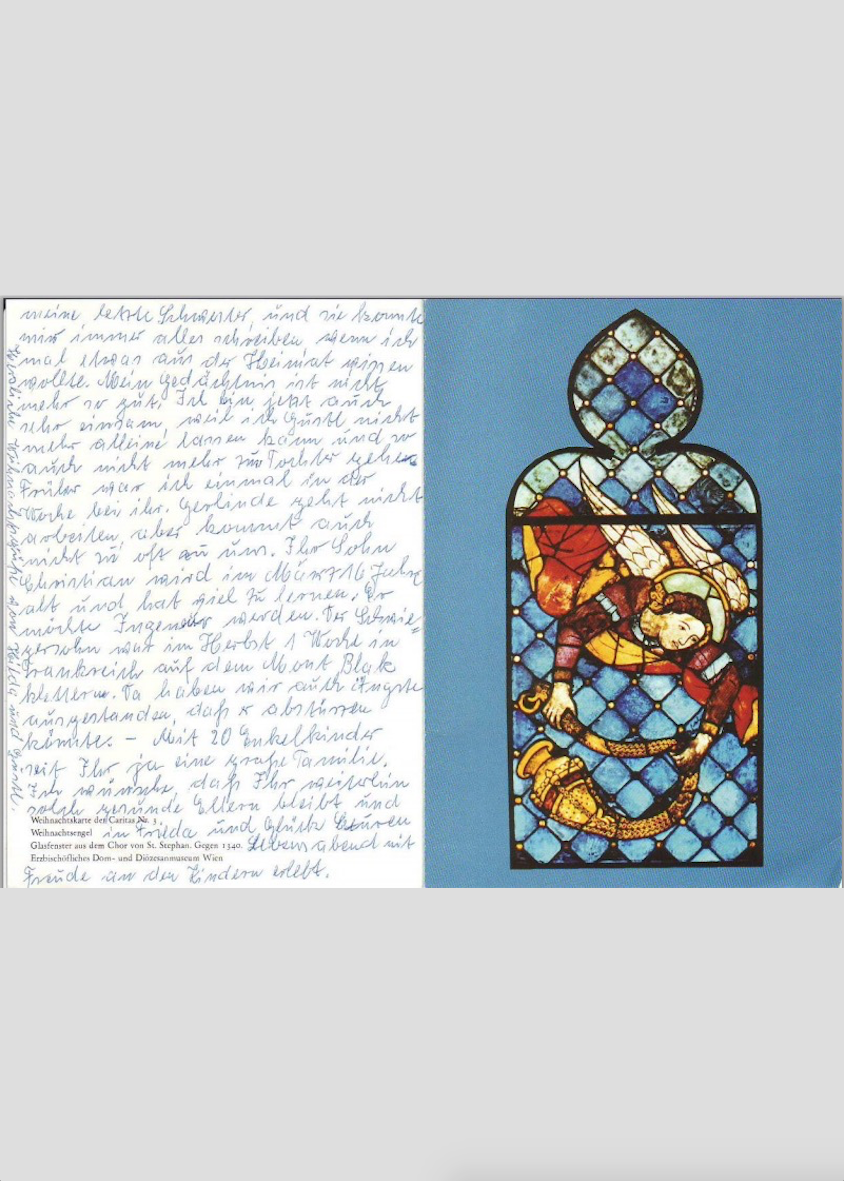 meine letzte Schwester, und sie konnte
mir immer alles schreiben wenn ich
mal etwas aus der Heimat wissen
wollte. Mein gedächtnis ist nicht
mehr so gut. Ich bin jetzt auch
sehr einsam, weil ich Gustl nicht
mehr alleine lassen kann und so
auch nicht mehr zur Tochter gehen
Früher war ich einmal in der
Woche bei ihr. Gerlinde geht nicht
arbeiten, aber kommt auch
nicht zu oft zu uns. Ihr Sohn
Christian wird im März 16 Jahre
alt und hat viel zu lernen. Er
möchte Ingeneur werden. Der Schwie=
gersohn war im Herbst 1 Woche in
Frankreich auf dem Mont Blak
klettern. Da haben wir auch Ängste
ausgestanden, daß er abstürzen
könnte. – Mit 20 Enkelkinder
seit Ihr ja eine große Familie.
Ich wünsche, daß Ihr weiterhin
solch gesunde Eltern bleibt und
in Frieda und Glück Euren
Lebensabend mit
Freude an den Kindern erlebt.
Weihnachtsgrüße von Hilda und Gustl.
Weihnachtskarte der Caritas Nr. 3
Weihnachtsengel
Glasfenster aus dem Chor von St. Stephan. Gegen 1340.
Erzbischöfliches Dom- und Diözesanmuseum Wien